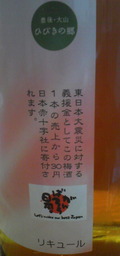 豊後・大山
ひびきの郷
東日本大震災に対する
義援金としてこの梅酒
1本の売上から30円
日本赤十字社に寄付さ
れます。
リキュール